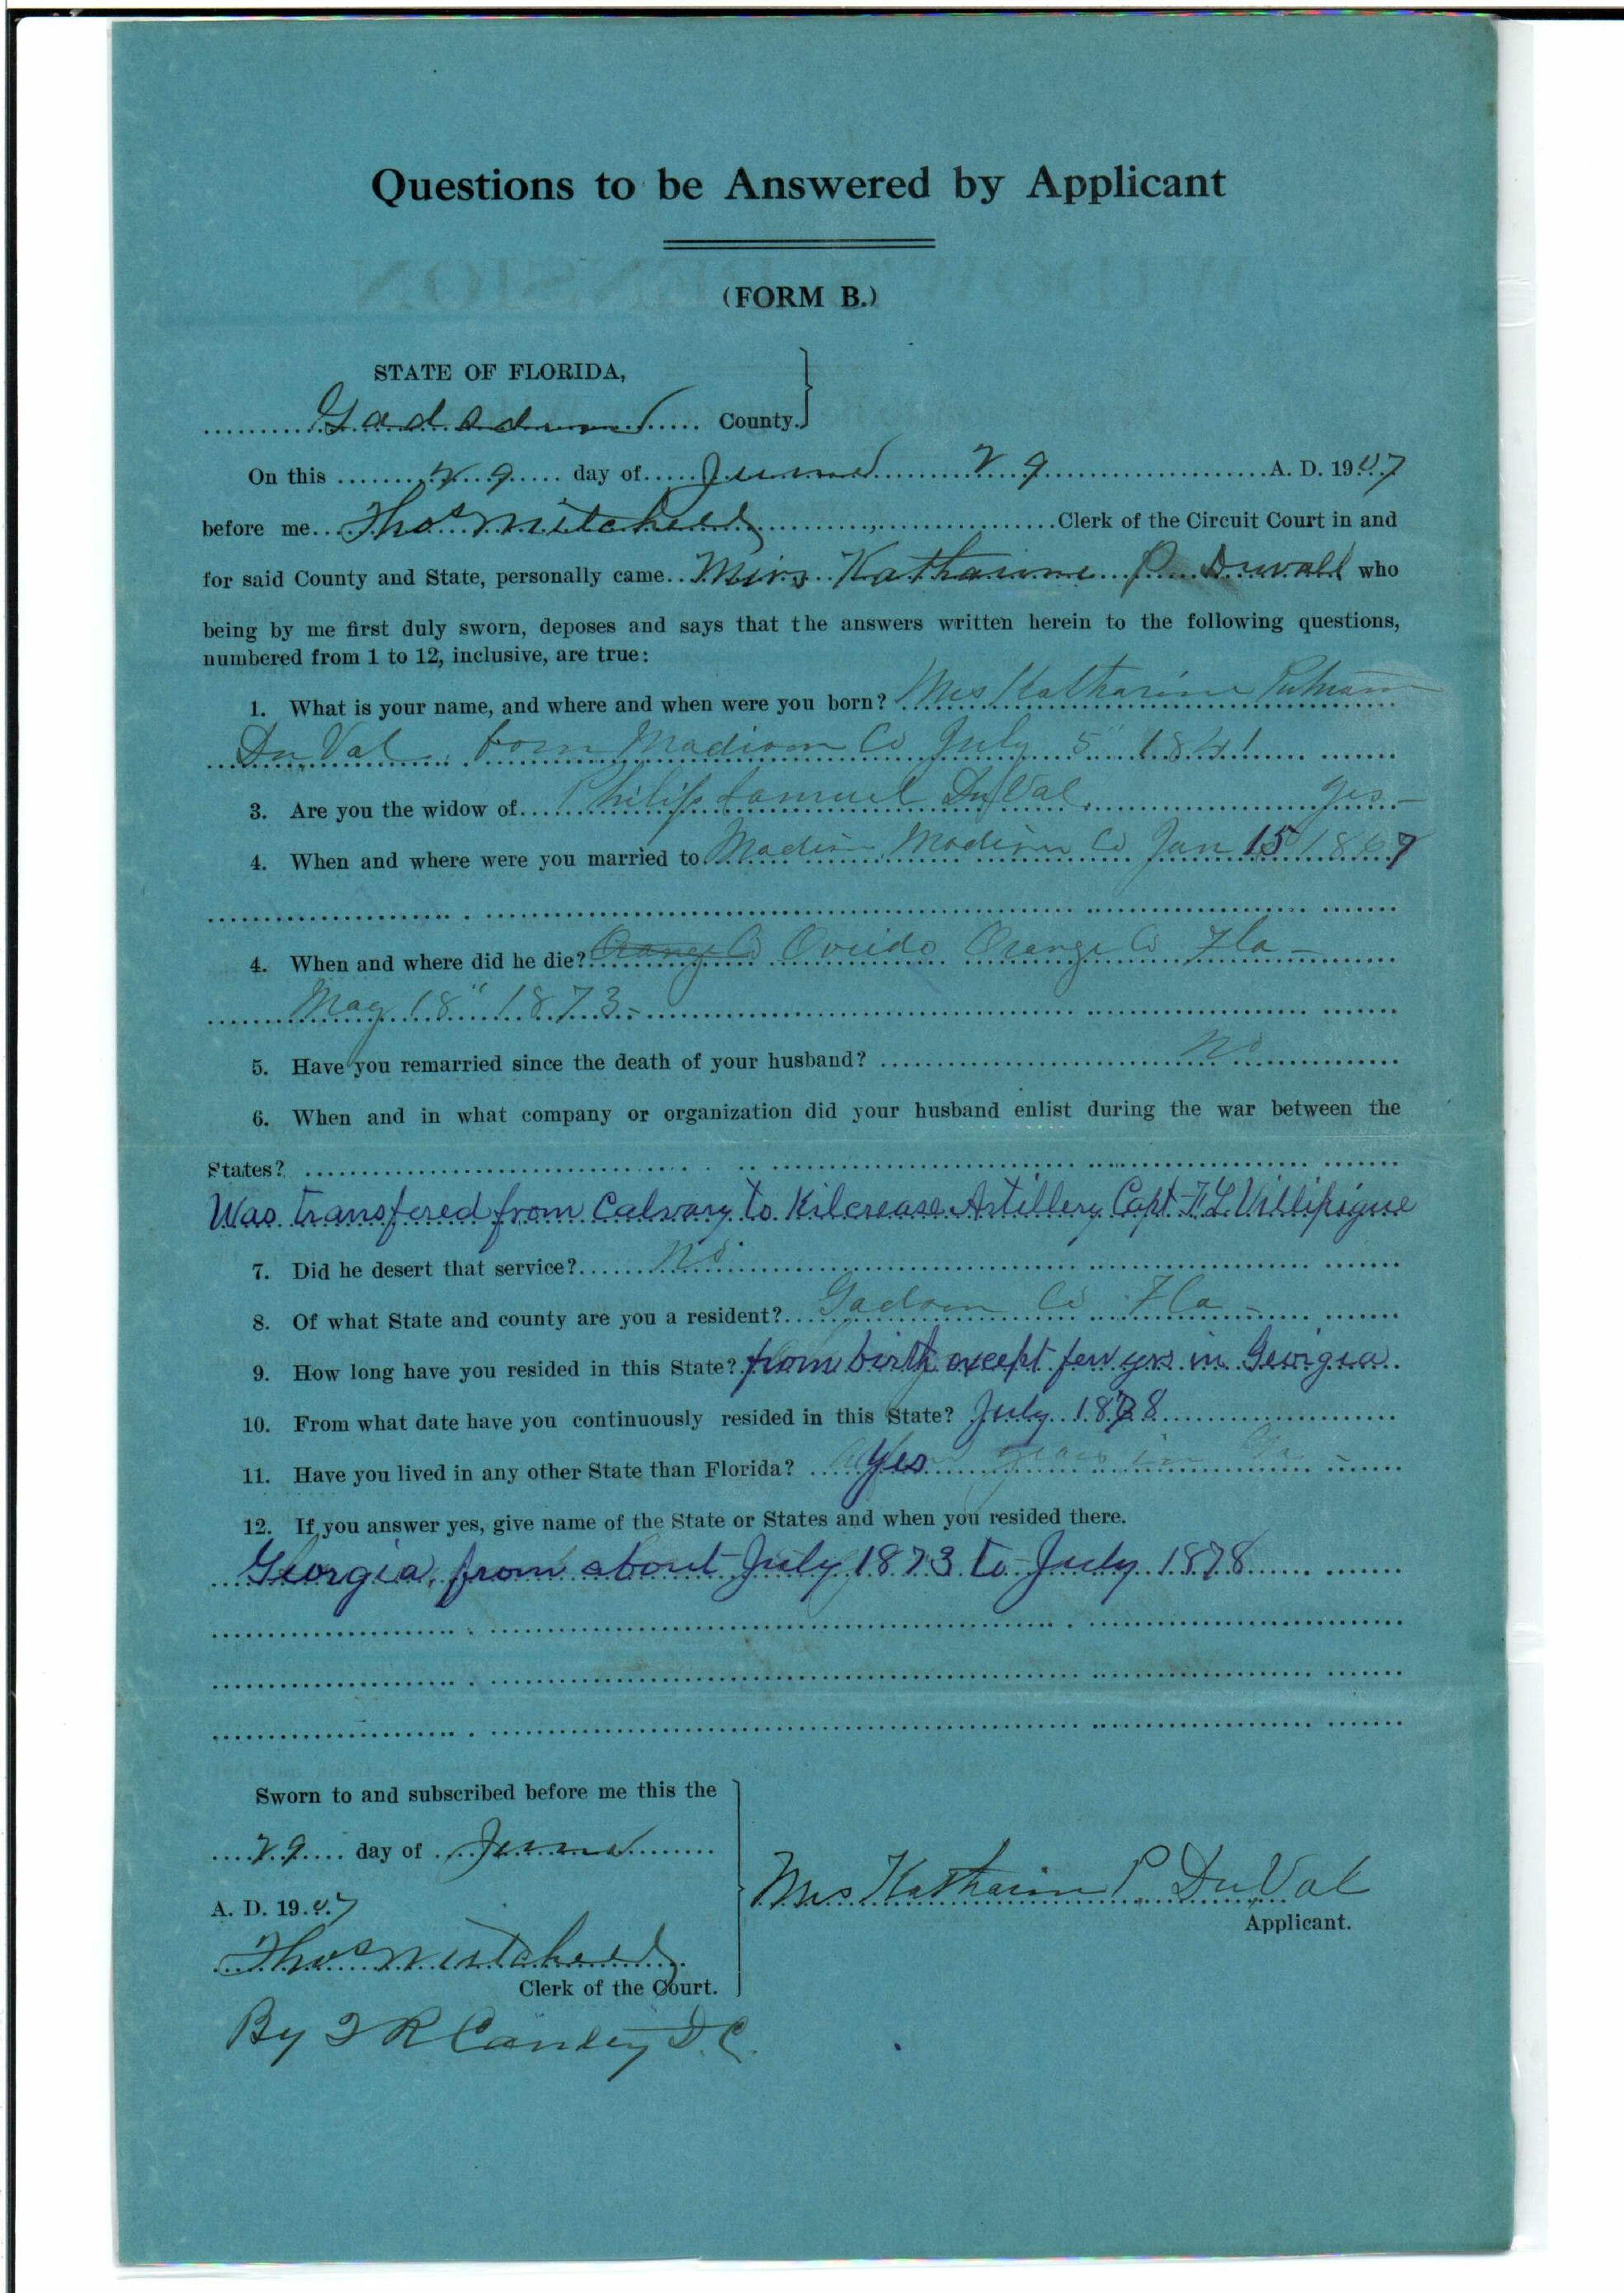 Questions to be Answered by Applicant
(FORM B.)
STATE OF FLORIDA,
Gadsden County.
On this 29 day of June 29 A. D. 1907
before me Thos Mitchell Clerk of the Circuit Court in and
for said County and State, personally came Mirs Katharine P. Duvall who
being by me first duly sworn, deposes and says that the answers written herein to the following questions,
numbered from 1 to 12, inclusive, are true:
1. What is your name, and where and when were you born? Mrs Katharine Putnam
Du Val born Madison Co July 5" 1841
3. Are you the widow of Philip Samuel DuVal yes —
4. When and where were you married to Madison Madison Co Jan 15 1867
4. When and where did he die? Orange Co Oviedo Orange Co Fla —
May 18" 1873 —
5. Have you remarried since the death of your husband? No
6. When and in what company or organization did your husband enlist during the war between the
States?
Was transfered from Calvary to Kilcrease Artillery Capt F. L. Villipigue
7. Did he desert that service? No
8. Of what State and county are you a resident? Gadsen Co Fla —
9. How long have you resided in this State? from birth except few yrs in Georgia.
10. From what date have you continuously resided in this State? July 1878
11. Have you lived in any other State than Florida? Yes years in Ga —
12. If you answer yes, give name of the State or States and when you resided there.
Georgia, from about July 1873 to July 1878
Sworn to and subscribed before me this the
29 day of June
A. D. 1907
Mrs Katharin P. DuVal
Applicant.
Thos Mitchell
Clerk of the Court.
By R D. C.